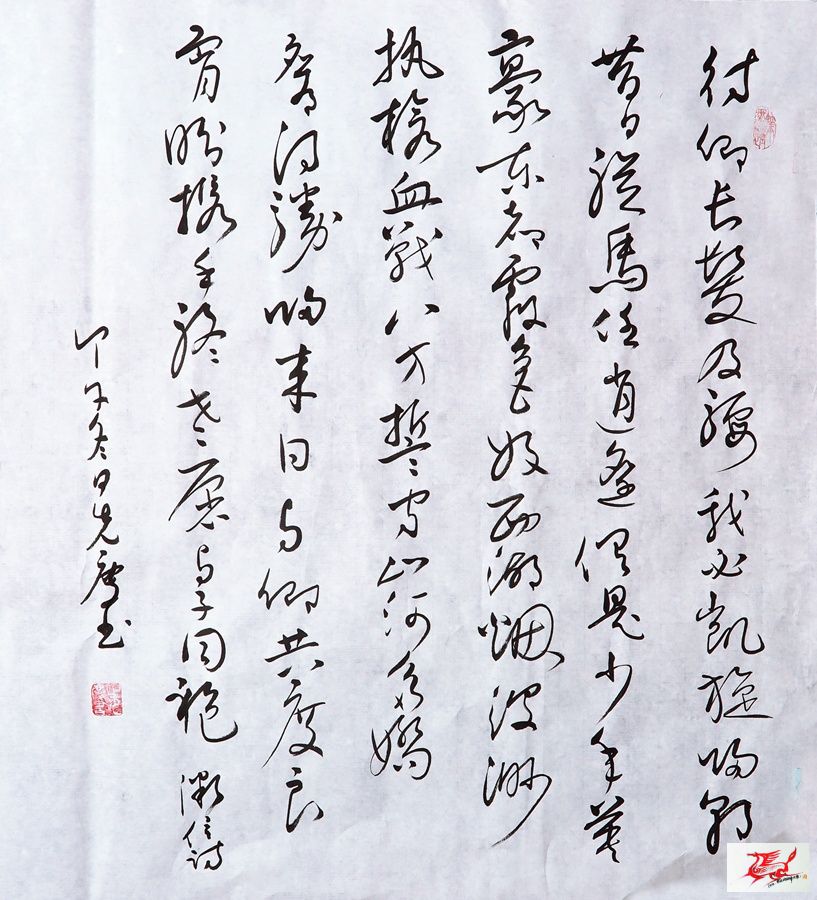 待卿长髮及腰我必凯旋归朝
昔日纵馬任逍遥俱是少年英
豪东都霞色好西湖烟波渺
执枪血戰八方誓守山河多娇
应有得勝归来日与卿共度良
宵盼携手终老愿与子同袍 微信诗
甲午冬日先书